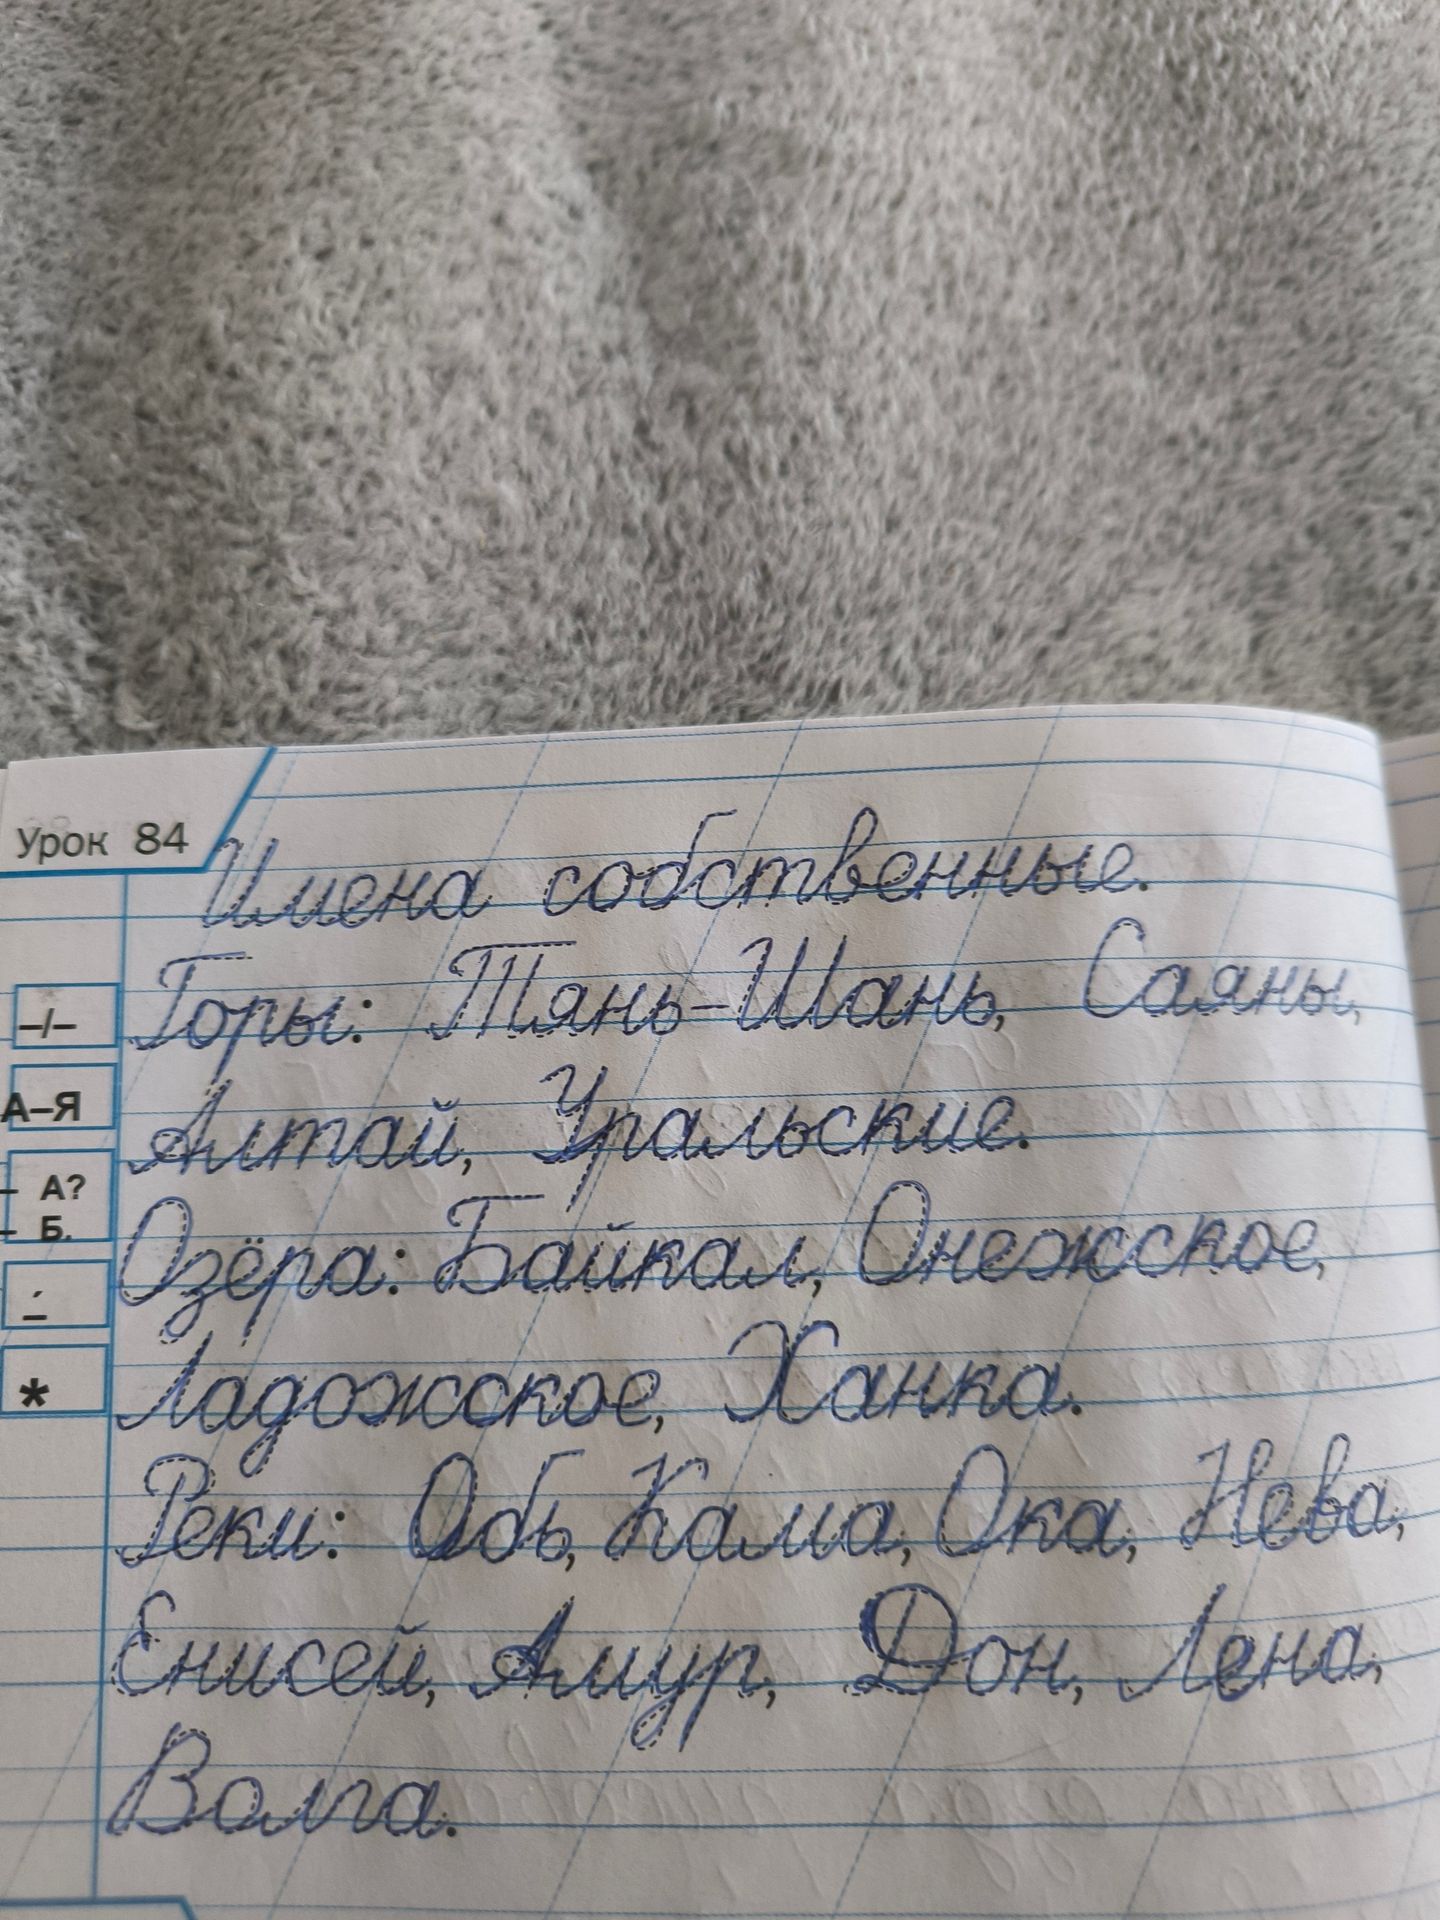 Урок 84
Имена собственные.
Горы: Тянь-Шань, Саяны,
Алтай, Уральские.
Озёра: Байкал, Онежское,
Ладожское, Ханка.
Реки: Обь, Кама, Ока, Нева,
Енисей, Амур, Дон, Лена,
Волга.
–/–
А–Я
– А?
– Б.
*